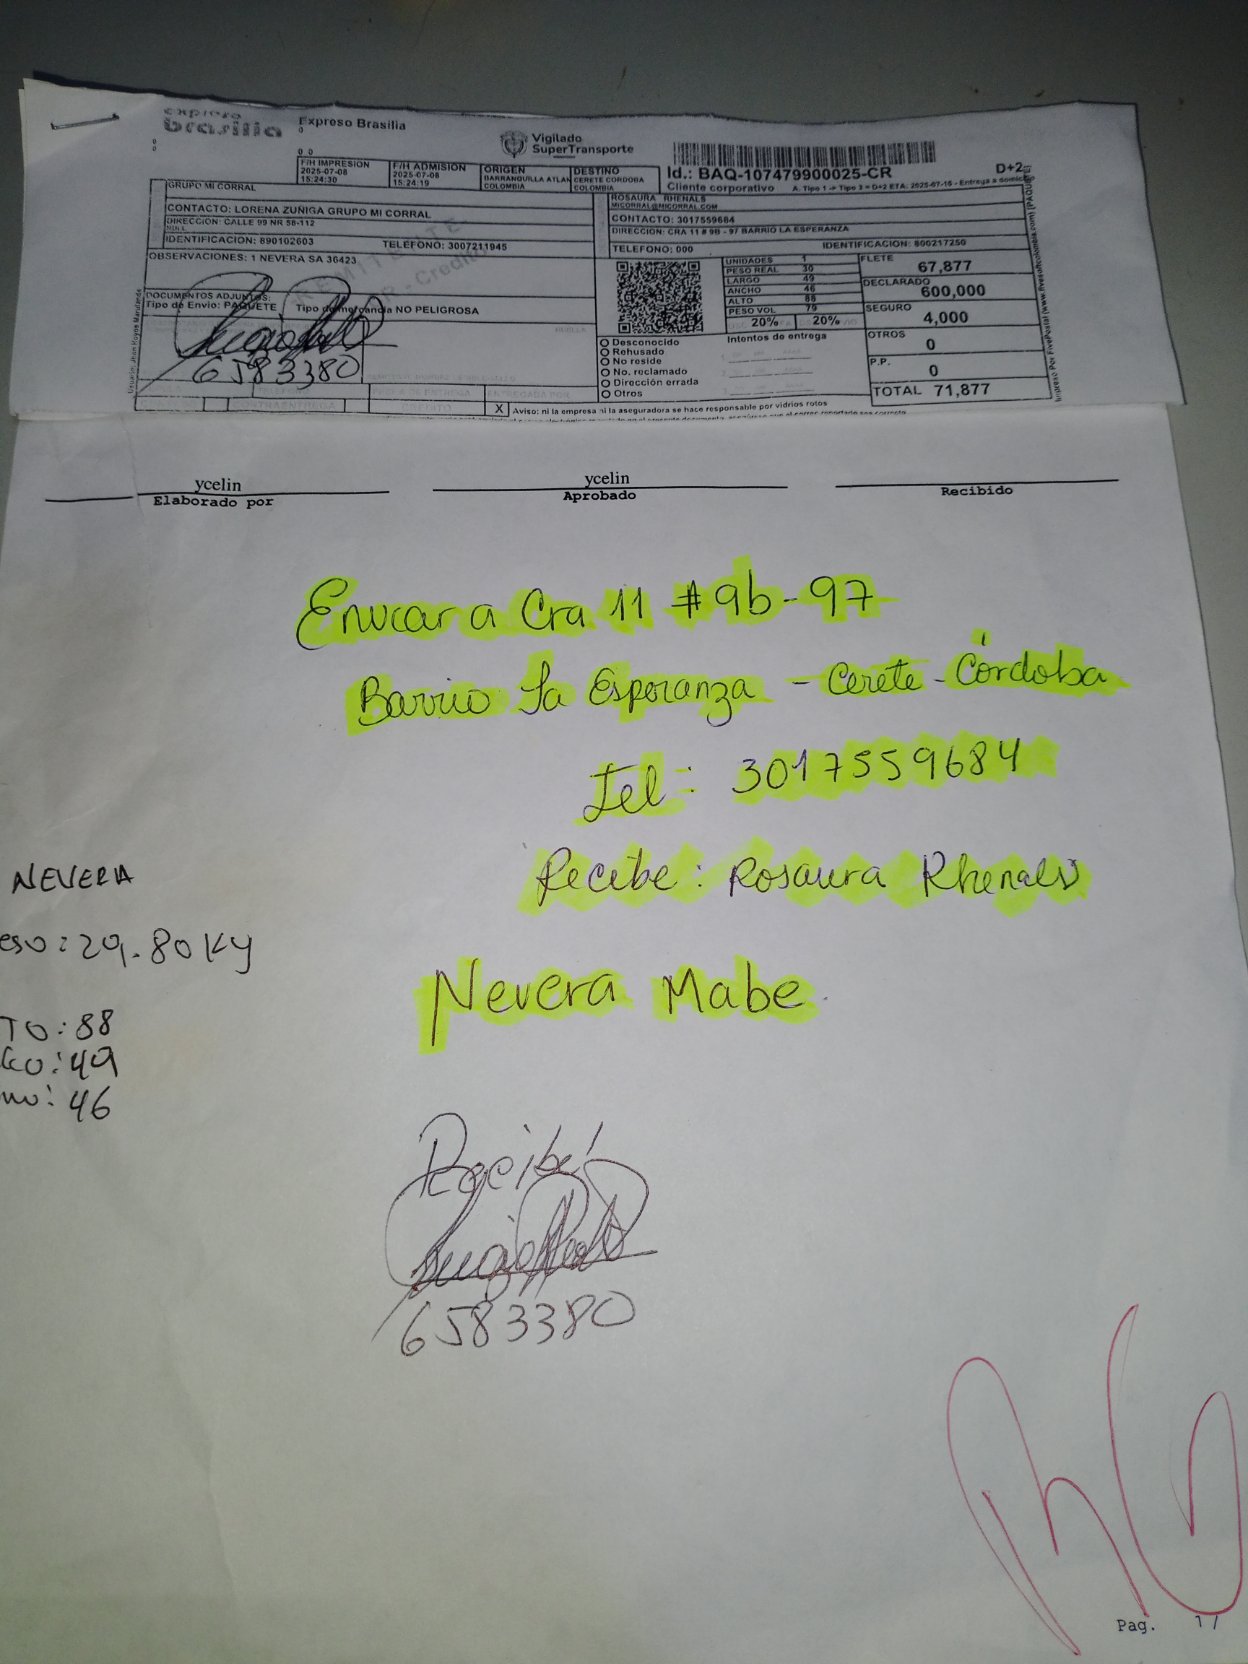 expreso
brasilia
Expreso Brasilia
0
0
0
0 0
Vigilado
SuperTransporte
F/H IMPRESION
2025-07-08
15:24:30
F/H ADMISION
2025-07-08
15:24:19
ORIGEN
BARRANQUILLA ATLAN
COLOMBIA
DESTINO
CERETE CORDOBA
COLOMBIA
Id.: BAQ-107479900025-CR
D+2
Cliente corporativo
GRUPO MI CORRAL
CONTACTO: LORENA ZUÑIGA GRUPO MI CORRAL
DIRECCION: CALLE 99 NR 56-112
IDENTIFICACION: 890102603 TELEFONO: 3007211945
OBSERVACIONES: 1 NEVERA SA 36423
REMITENTE
- Credito
DOCUMENTOS ADJUNTOS:
Tipo de Envio: PAQUETE Tipo de mercancia NO PELIGROSA
6583380
ROSAURA RHENALS
MICORRAL@MICORRAL.COM
CONTACTO: 3017559684
DIRECCION: CRA 11 # 9B - 97 BARRIO LA ESPERANZA
TELEFONO: 000 IDENTIFICACION: 800217250
UNIDADES 1
PESO REAL 30
LARGO 49
ANCHO 46
ALTO 88
PESO VOL 79
20% 20%
FLETE
67,877
DECLARADO
600,000
SEGURO
4,000
OTROS
0
P.P.
0
TOTAL 71,877
Desconocido
Rehusado
No reside
No. reclamado
Dirección errada
Otros
Intentos de entrega
X Aviso: ni la empresa ni la aseguradora se hace responsable por vidrios rotos
ycelin
Elaborado por
ycelin
Aprobado
Recibido
Enviar a Cra 11 #9b-97
Barrio La Esperanza - Cereté - Córdoba
Tel: 3017559684
Recibe: Rosaura Rhenals
NEVERA
eso: 29.80 Kg
TO: 88
49
46
Nevera Mabe.
Recibí
6583380
Pag. 1 /